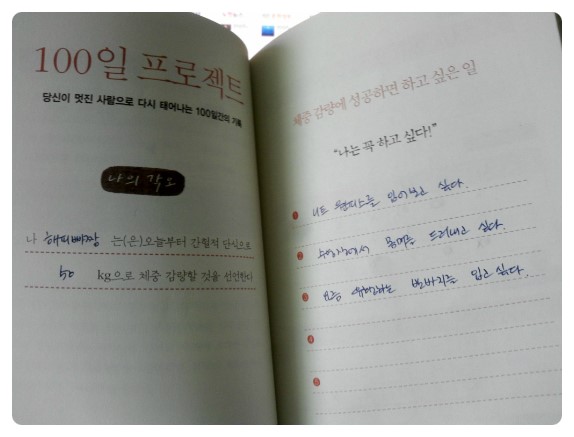 100일 프로젝트
당신이 멋진 사람으로 다시 태어나는 100일간의 기록
나의 각오
나 해피빠짱 는(은)오늘부터 간헐적 단식으로
50 kg으로 체중 감량할 것을 선언한다
체중 감량에 성공하면 하고 싶은 일
"나는 꼭 하고 싶다!"
1 니트 원피스를 입어보고 싶다.
2 수영장에서 몸매를 드러내고 싶다.
3 요즘 유행하는 반바지를 입고 싶다.
4
5